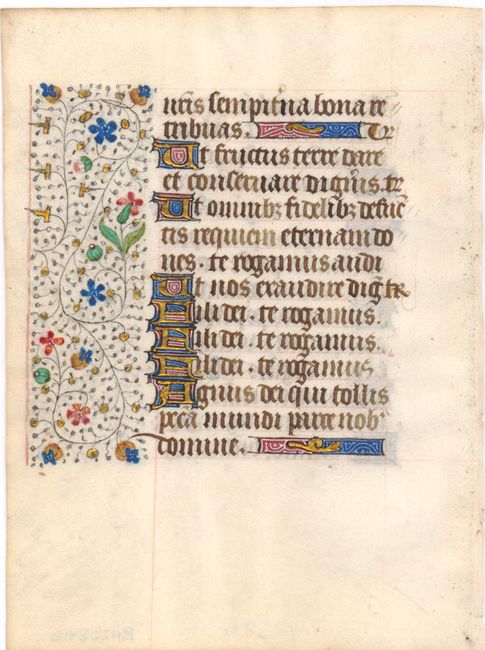 uris sempitna bona re
tribuas. Tr
Ut fructus terre dare
et conseruare digris. tr
Ut omnibz fidelibz defuc
tis requiem eternam do
nes. te rogamus audi
Ut nos exaudire dig te
Fili dei. te rogamus
Fili dei. te rogamus.
Fili dei. te rogamus
Agnus dei qui tollis
peca mundi parce nob
domine.